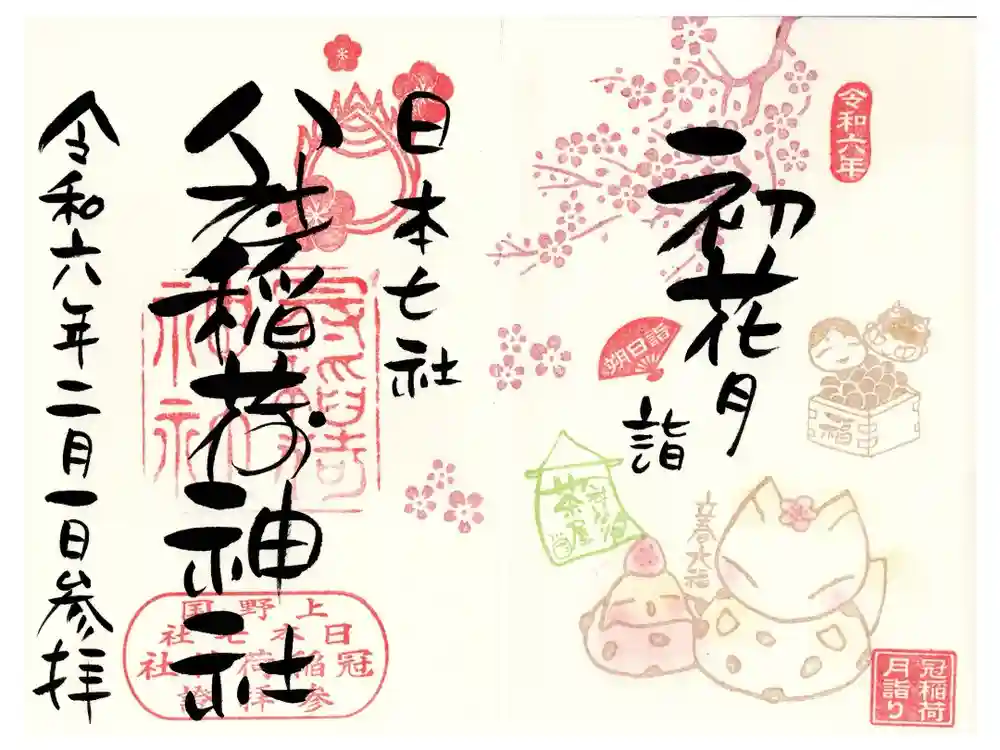 令和六年
初花月
詣
朔日詣
福
茶屋
立春大福
冠稲荷
月詣り
日本七社
冠稲荷神社
上野国
日本七社
冠稲荷神社
参拝證
令和六年二月一日参拝